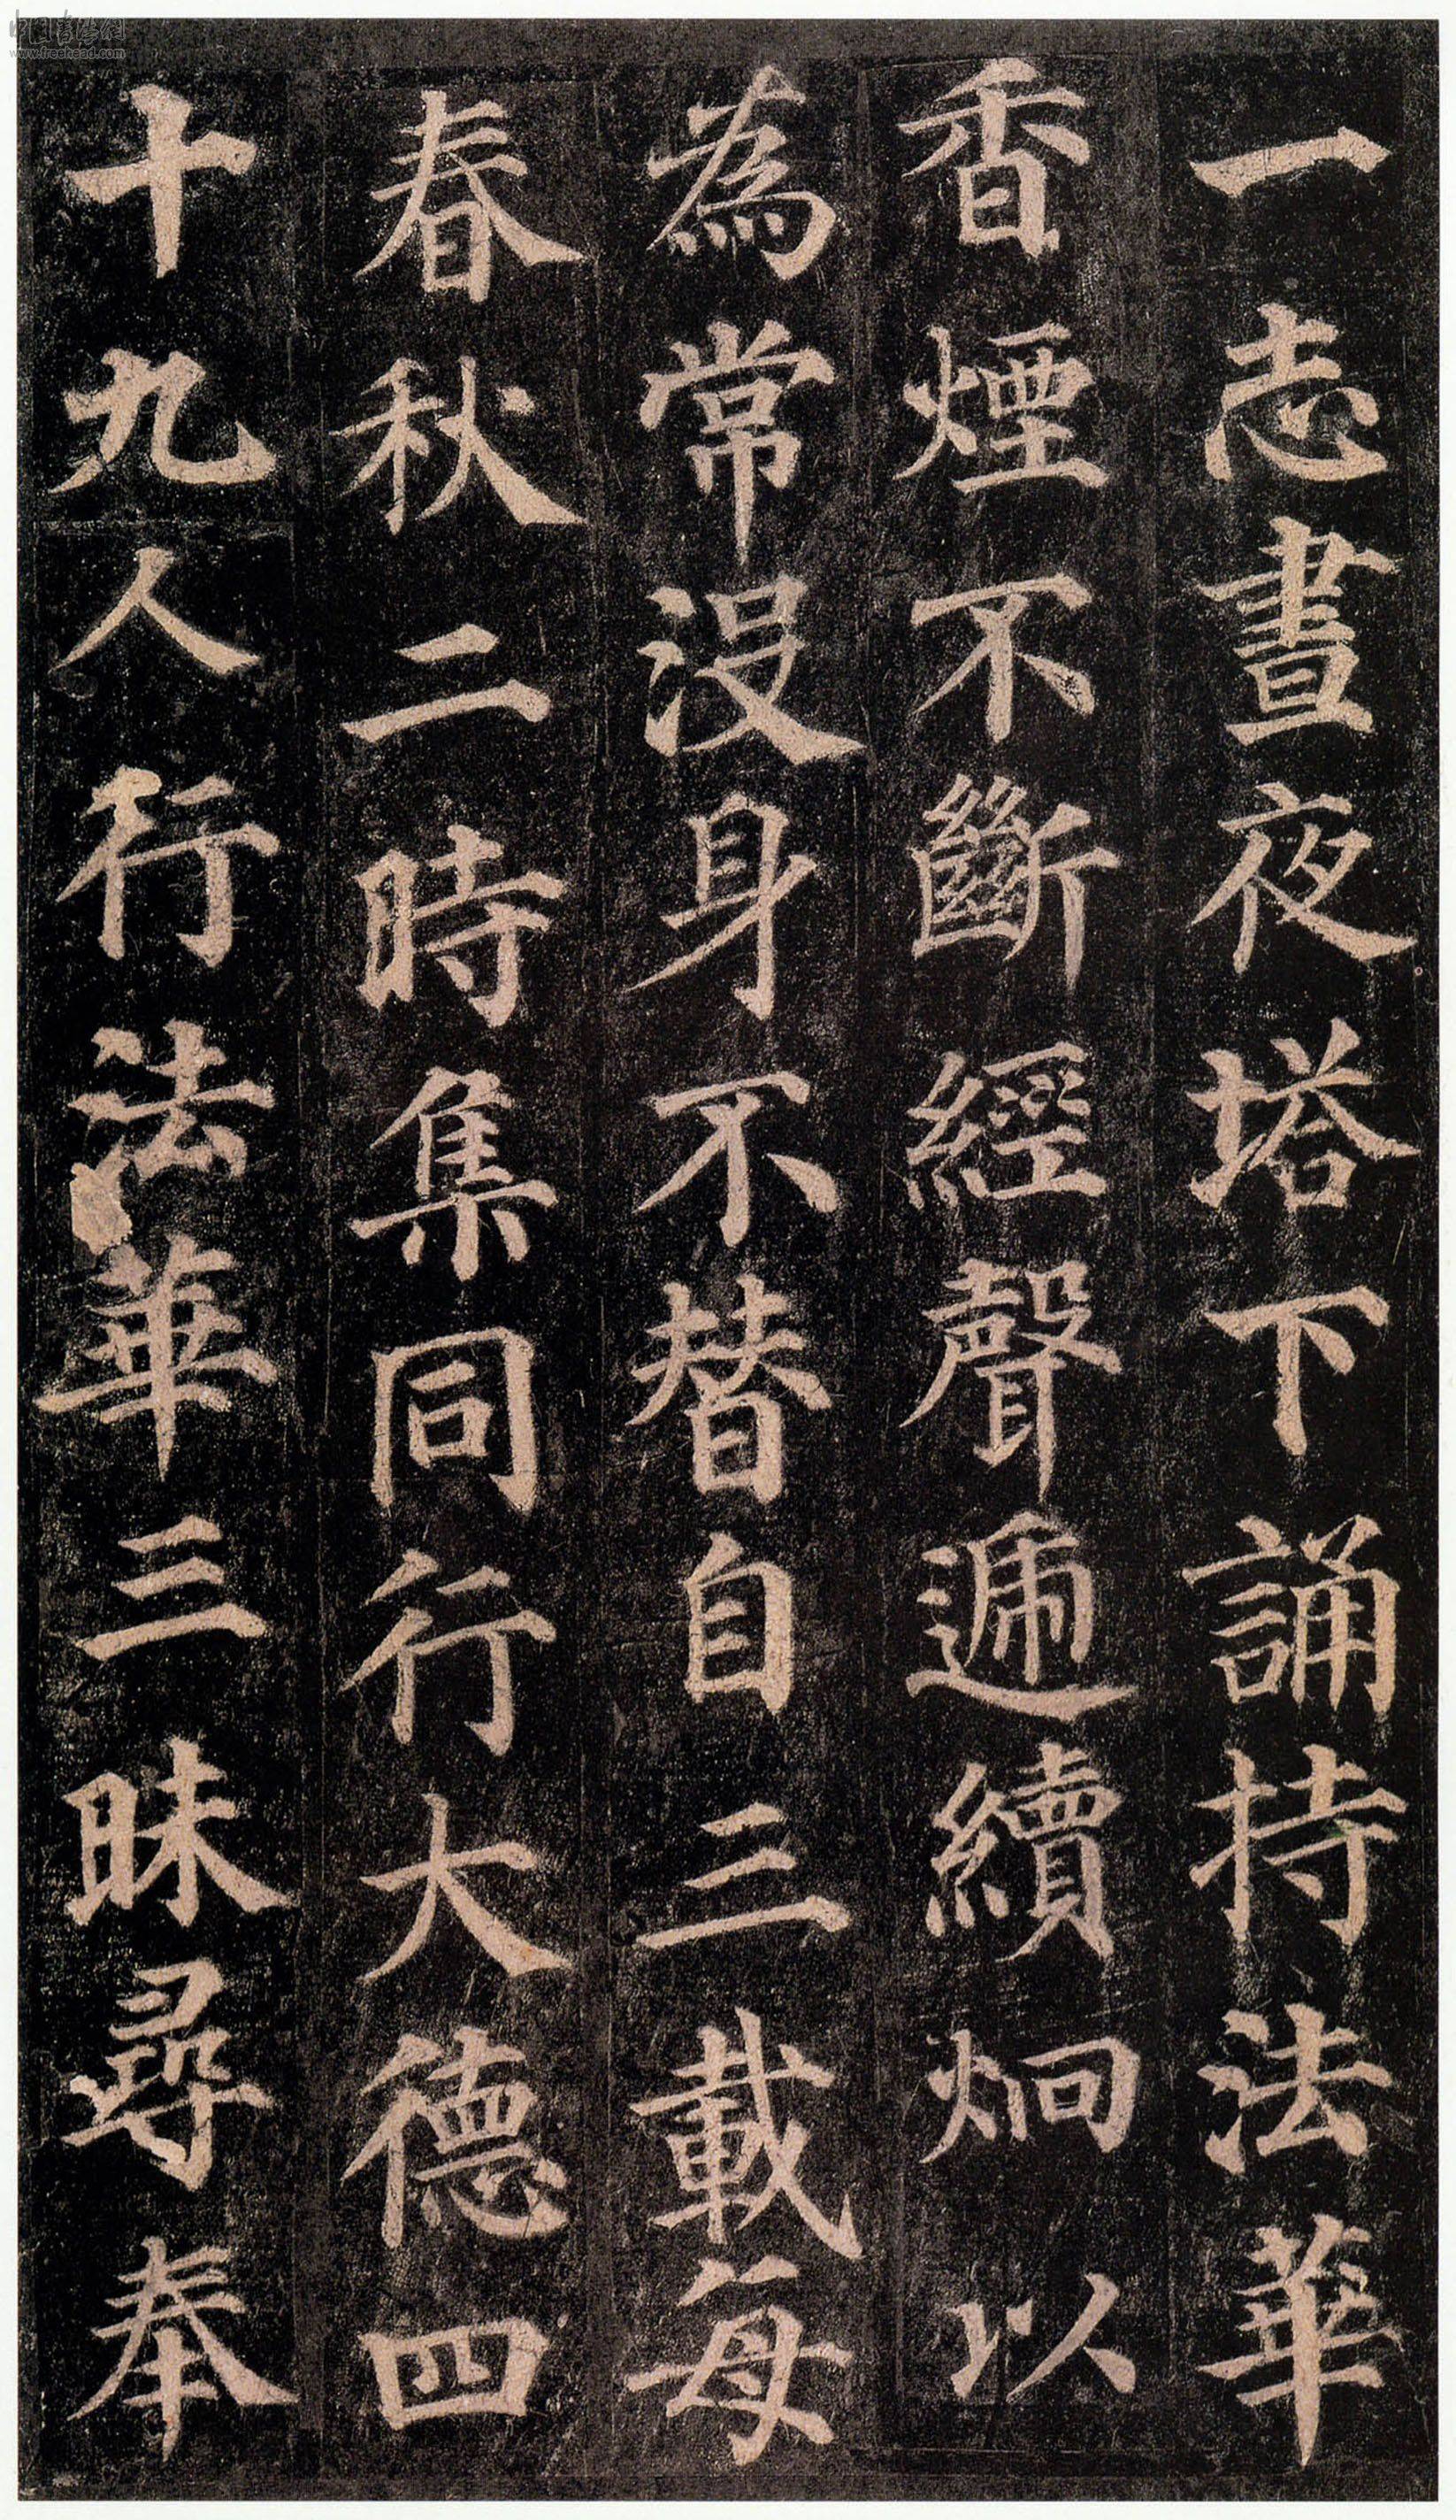 一志晝夜塔下誦持法華
香煙不斷經聲遞續炯以
為常沒身不替自三載每
春秋二時集同行大德四
十九人行法華三昧尋奉
中国书学网
www.freehead.com